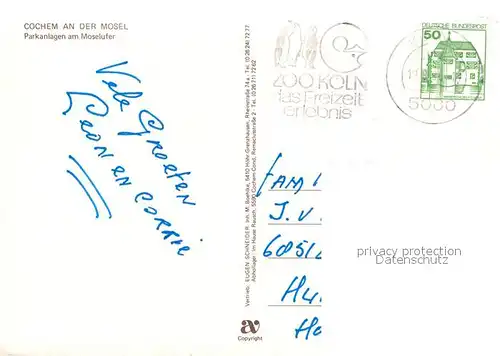 COCHEM AN DER MOSEL
Parkanlagen am Moselufer
Vele Groeten
Leon en Corrie
Vertrieb: EUGEN SCHNEIDER inh. M. Boehlke, 5410 Höhr-Grenzhausen, Rheinstraße 74a · Tel. (0 26 24) 72 77
Abhollager: Im Hause Rausch, 5590 Cochem-Cond, Remaclusstraße 2 · Tel. (0 26 71) 72 62
av
Copyright
ZOO KÖLN
das Freizeit
erlebnis
5000
DEUTSCHE BUNDESPOST
50
FAM
J.V.
6851
Hu
Ho
privacy protection
Datenschutz